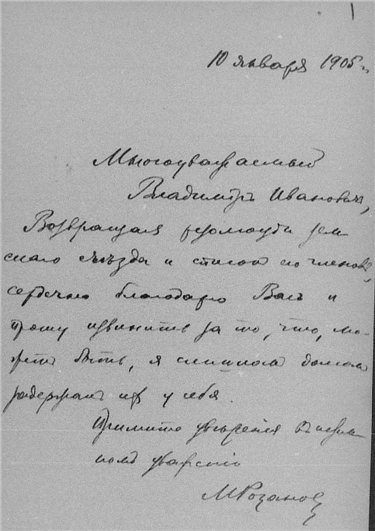 1
10 января 1905 г.
Многоуважаемый
Владимиръ Ивановичъ,
Возвращая резолюціи зем
скаго съѣзда и списокъ его членовъ,
сердечно благодарю Васъ и
прошу извинить за то, что, мо-
жетъ быть, я слишкомъ долго
задержалъ ихъ у себя.
Примите увѣренія въ искрен
номъ уваженіи
М Розановъ